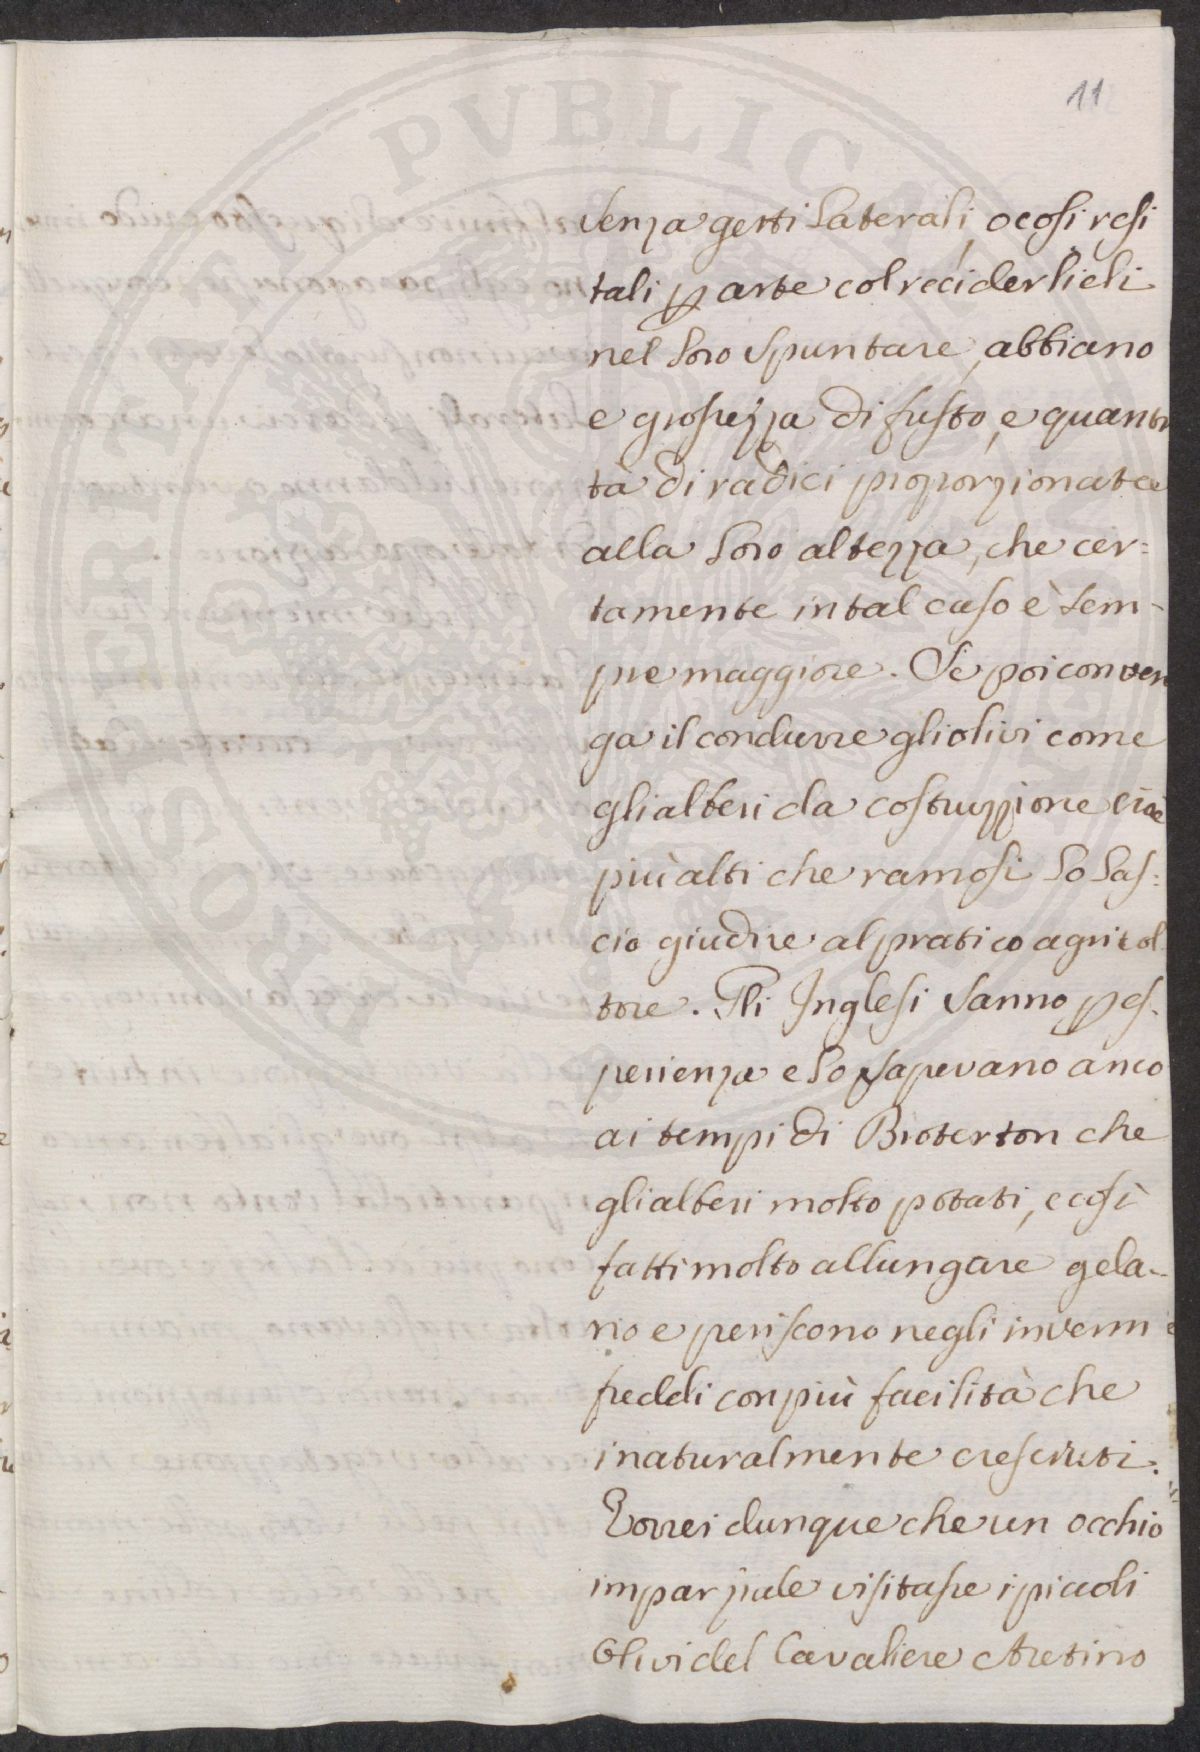 11
senza getti laterali, o cosi resi
tali p arte col recider lieli
nel loro spuntare, abbiano
e grossezza di fusto, e quanti
tà di radici proporzionate
alla loro altezza, che cer=
tamente in tal caso è sem-
pre maggiore. Se poi conven
ga il condurre gli olivi come
gli alberi da costruzzione cioè
più alti che ramosi lo las=
cio giudice al pratico agricol
tore. Gli Inglesi sanno p es.
perienza e lo sapevano anco
ai tempi di Broterton che
gli alberi molto potati, e così
fatti molto allungare gela-
no e periscono negli inverni
freddi con più facilità che
i naturalmente cresciuti.
Vorrei dunque che un occhio
imparziale visitasse i piccoli
Olivi del Cavaliere Aretino
PROSPERITATI PVBLICAE